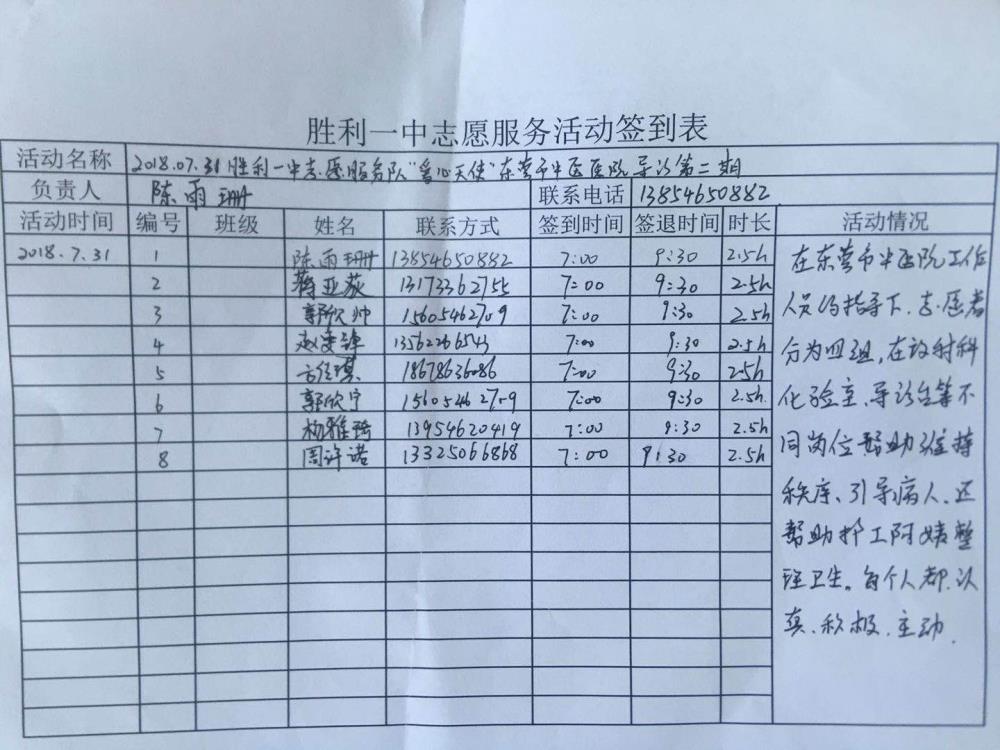 胜利一中志愿服务活动签到表
活动名称 2018.07.31胜利一中志愿服务队“爱心天使”东营市中医医院导诊第二期
负责人 陈雨珊 联系电话 13854650882
活动时间 编号 班级 姓名 联系方式 签到时间 签退时间 时长 活动情况
2018.7.31 1 陈雨珊 13854650882 7:00 9:30 2.5h
2 蒋亚荻 13173362755 7:00 9:30 2.5h
3 郭欣帅 15605462709 7:00 9:30 2.5h
4 赵 13562266543 7:00 9:30 2.5h
5 方 18678636086 7:00 9:30 2.5h
6 郭欣宁 15605462709 7:00 9:30 2.5h.
7 杨雅琦 13954620419 7:00 9:30 2.5h
8 周许诺 13325066868 7:00 9:30 2.5h
在东营市中医院工作
人员的指导下、志愿者
分为四组,在放射科
化验室、导诊台等不
同岗位帮助维持
秩序、引导病人、还
帮助护工阿姨整
理卫生。每个人都认
真、积极、主动.